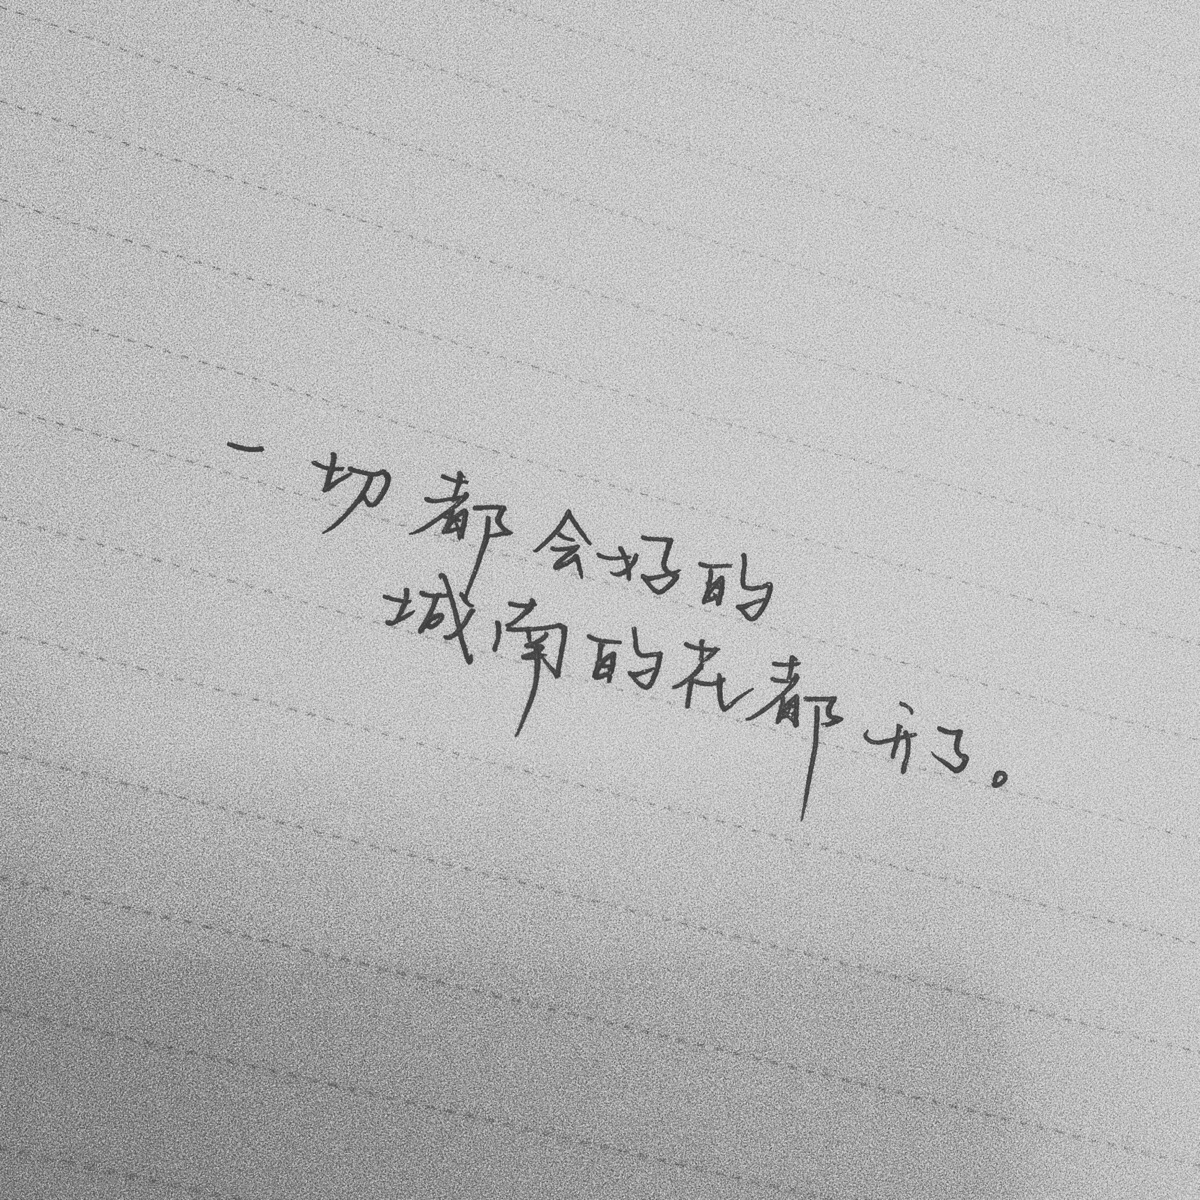 一切都会好的
城南的花都开了。